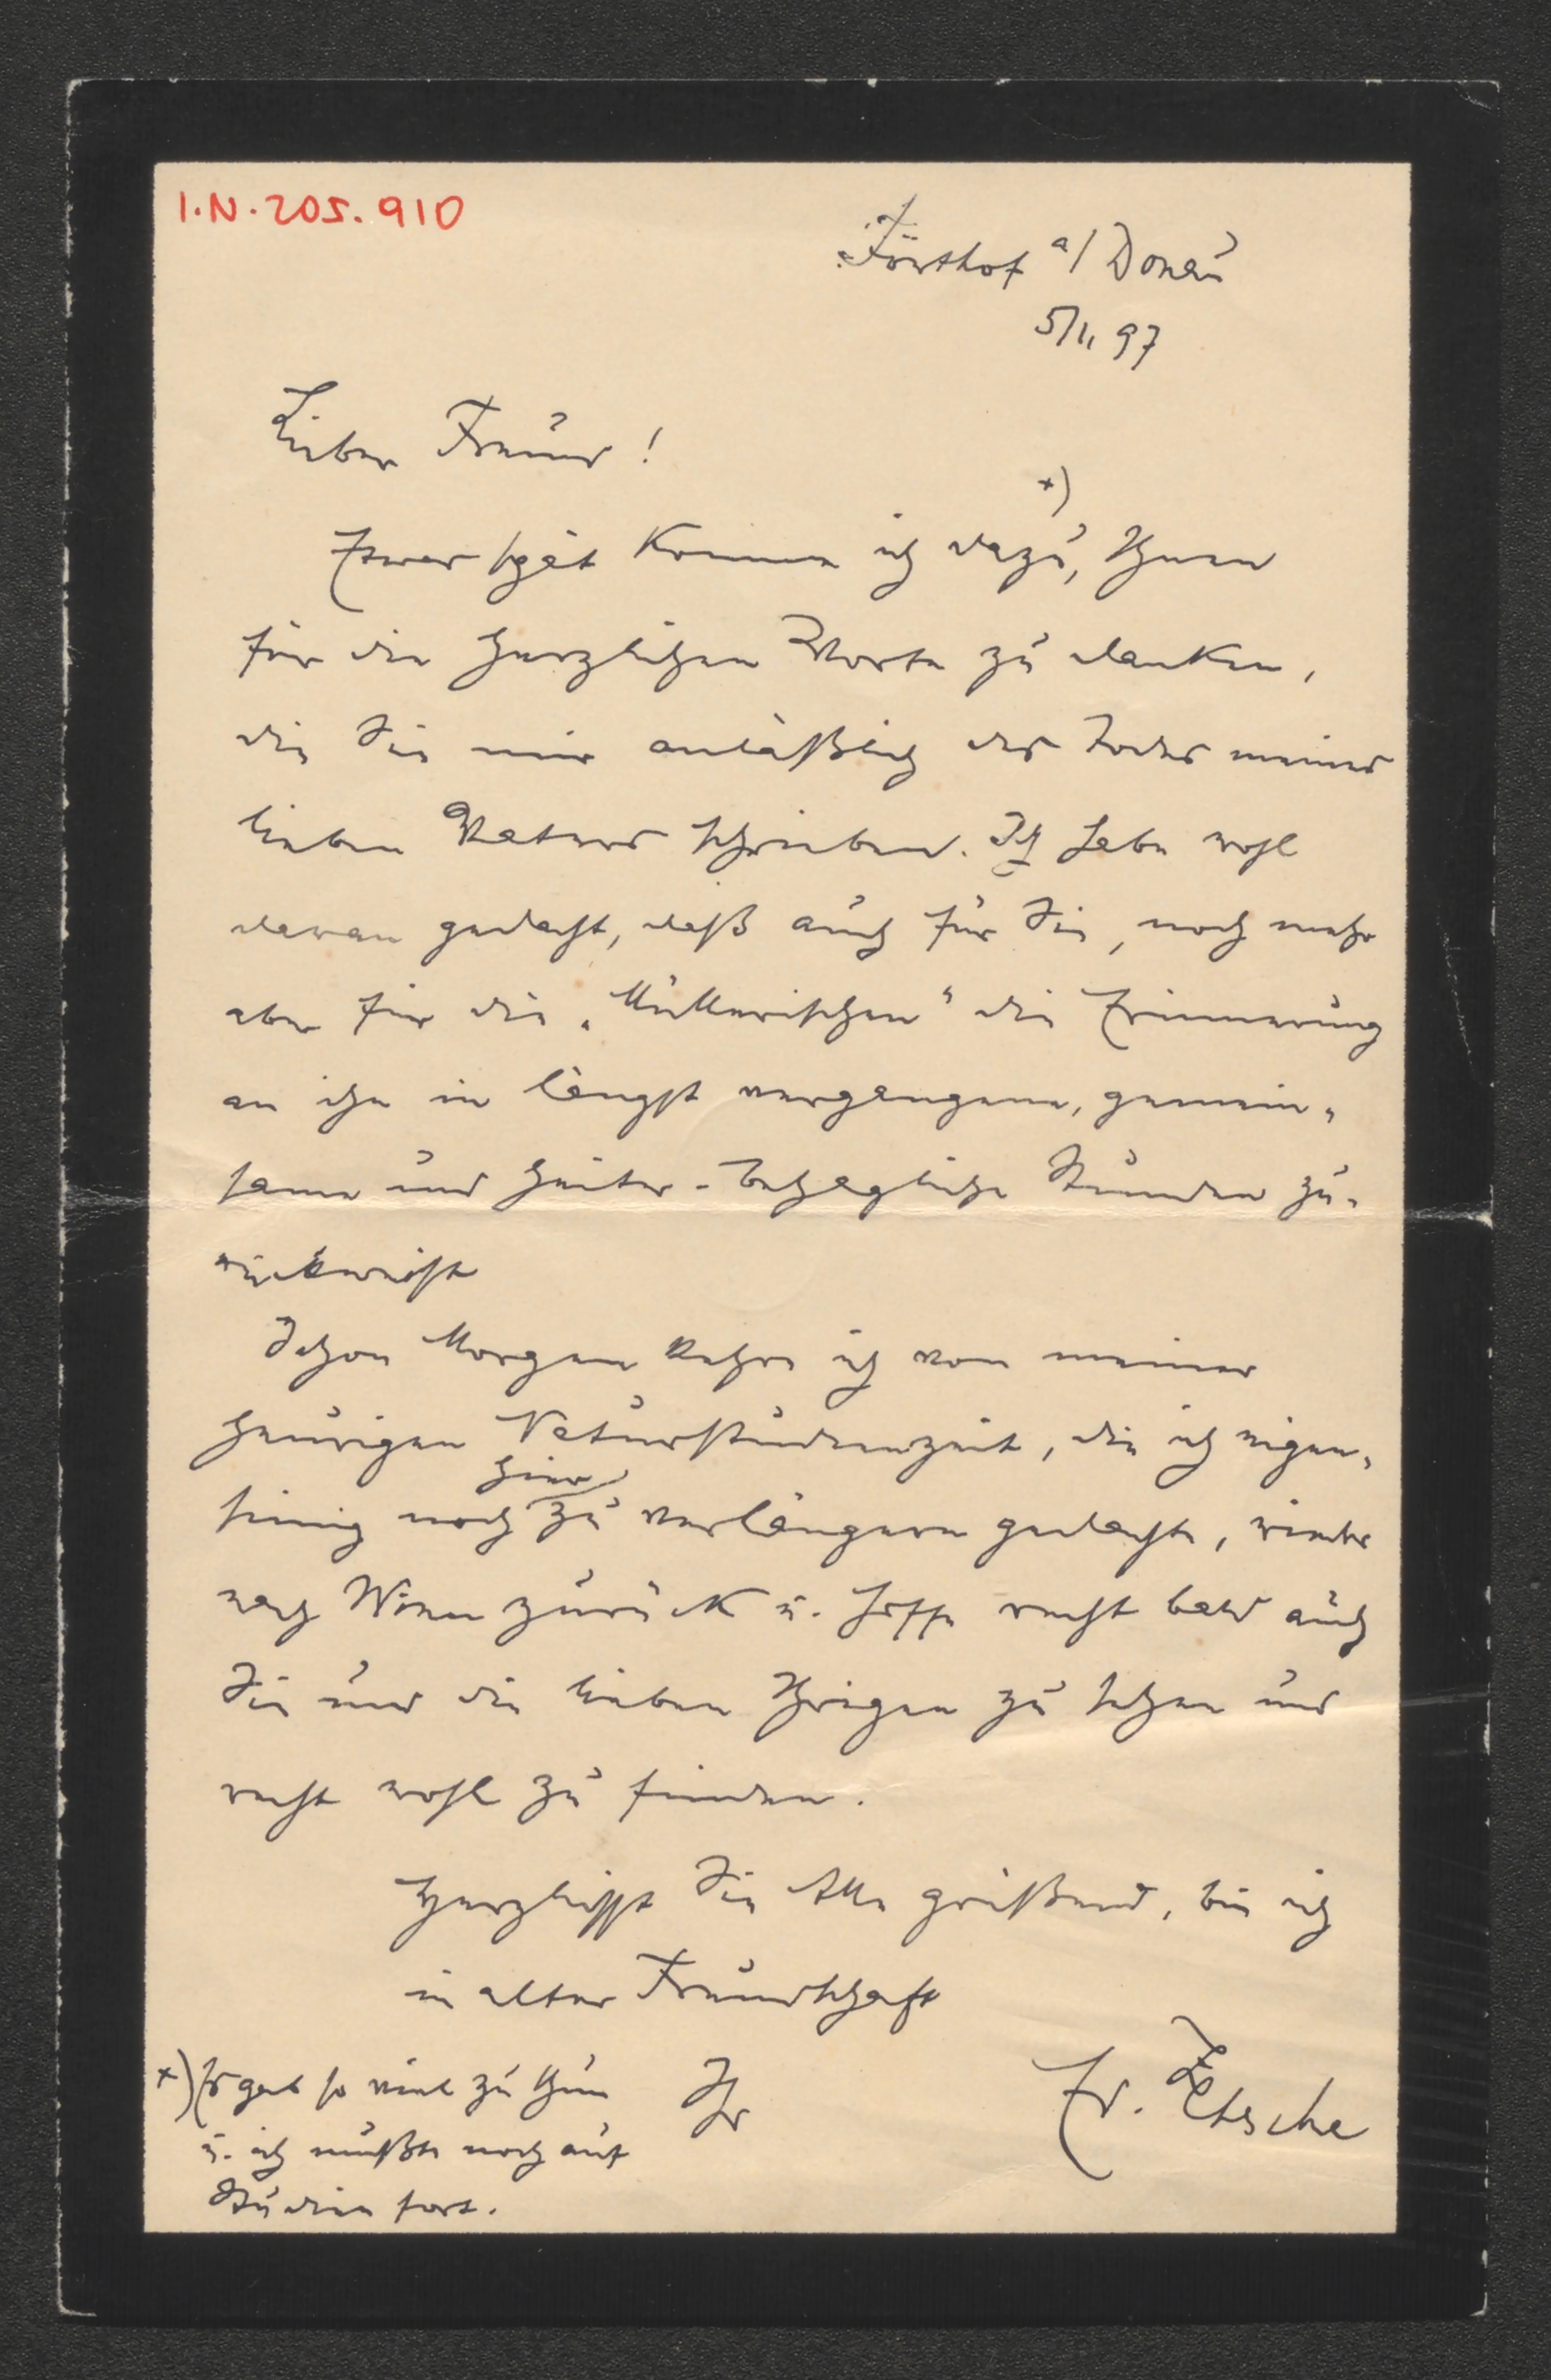 I.N. 205.910
Förthof a/ Donau
5/11 97
Lieber Freund!
Etwas spät komme ich dazu, +) Ihnen
für die herzlichen Worte zu danken,
die Sie mir anläßlich des Todes meines
lieben Vaters schrieben. Ich habe wohl
daran gedacht, daß auch für Sie, noch mehr
aber für die „Müllerischen" die Erinnerung
an ihn in längst vergangene, gemein-
same und heiter-behagliche Stunden zu-
rückweist
Schon Morgen kehre ich von meiner
heurigen Naturstudienzeit, die ich eigen-
sinnig noch hier zu verlängern gedachte, wieder
nach Wien zurück u. hoffe recht bald auch
Sie und die lieben Ihrigen zu sehen und
recht wohl zu finden.
Herzlichst Sie Alle grüßend, bin ich
in alter Freundschaft
Ihr
+) Es gab so viel zu thun
u. ich mußte noch auf
Studien fort.